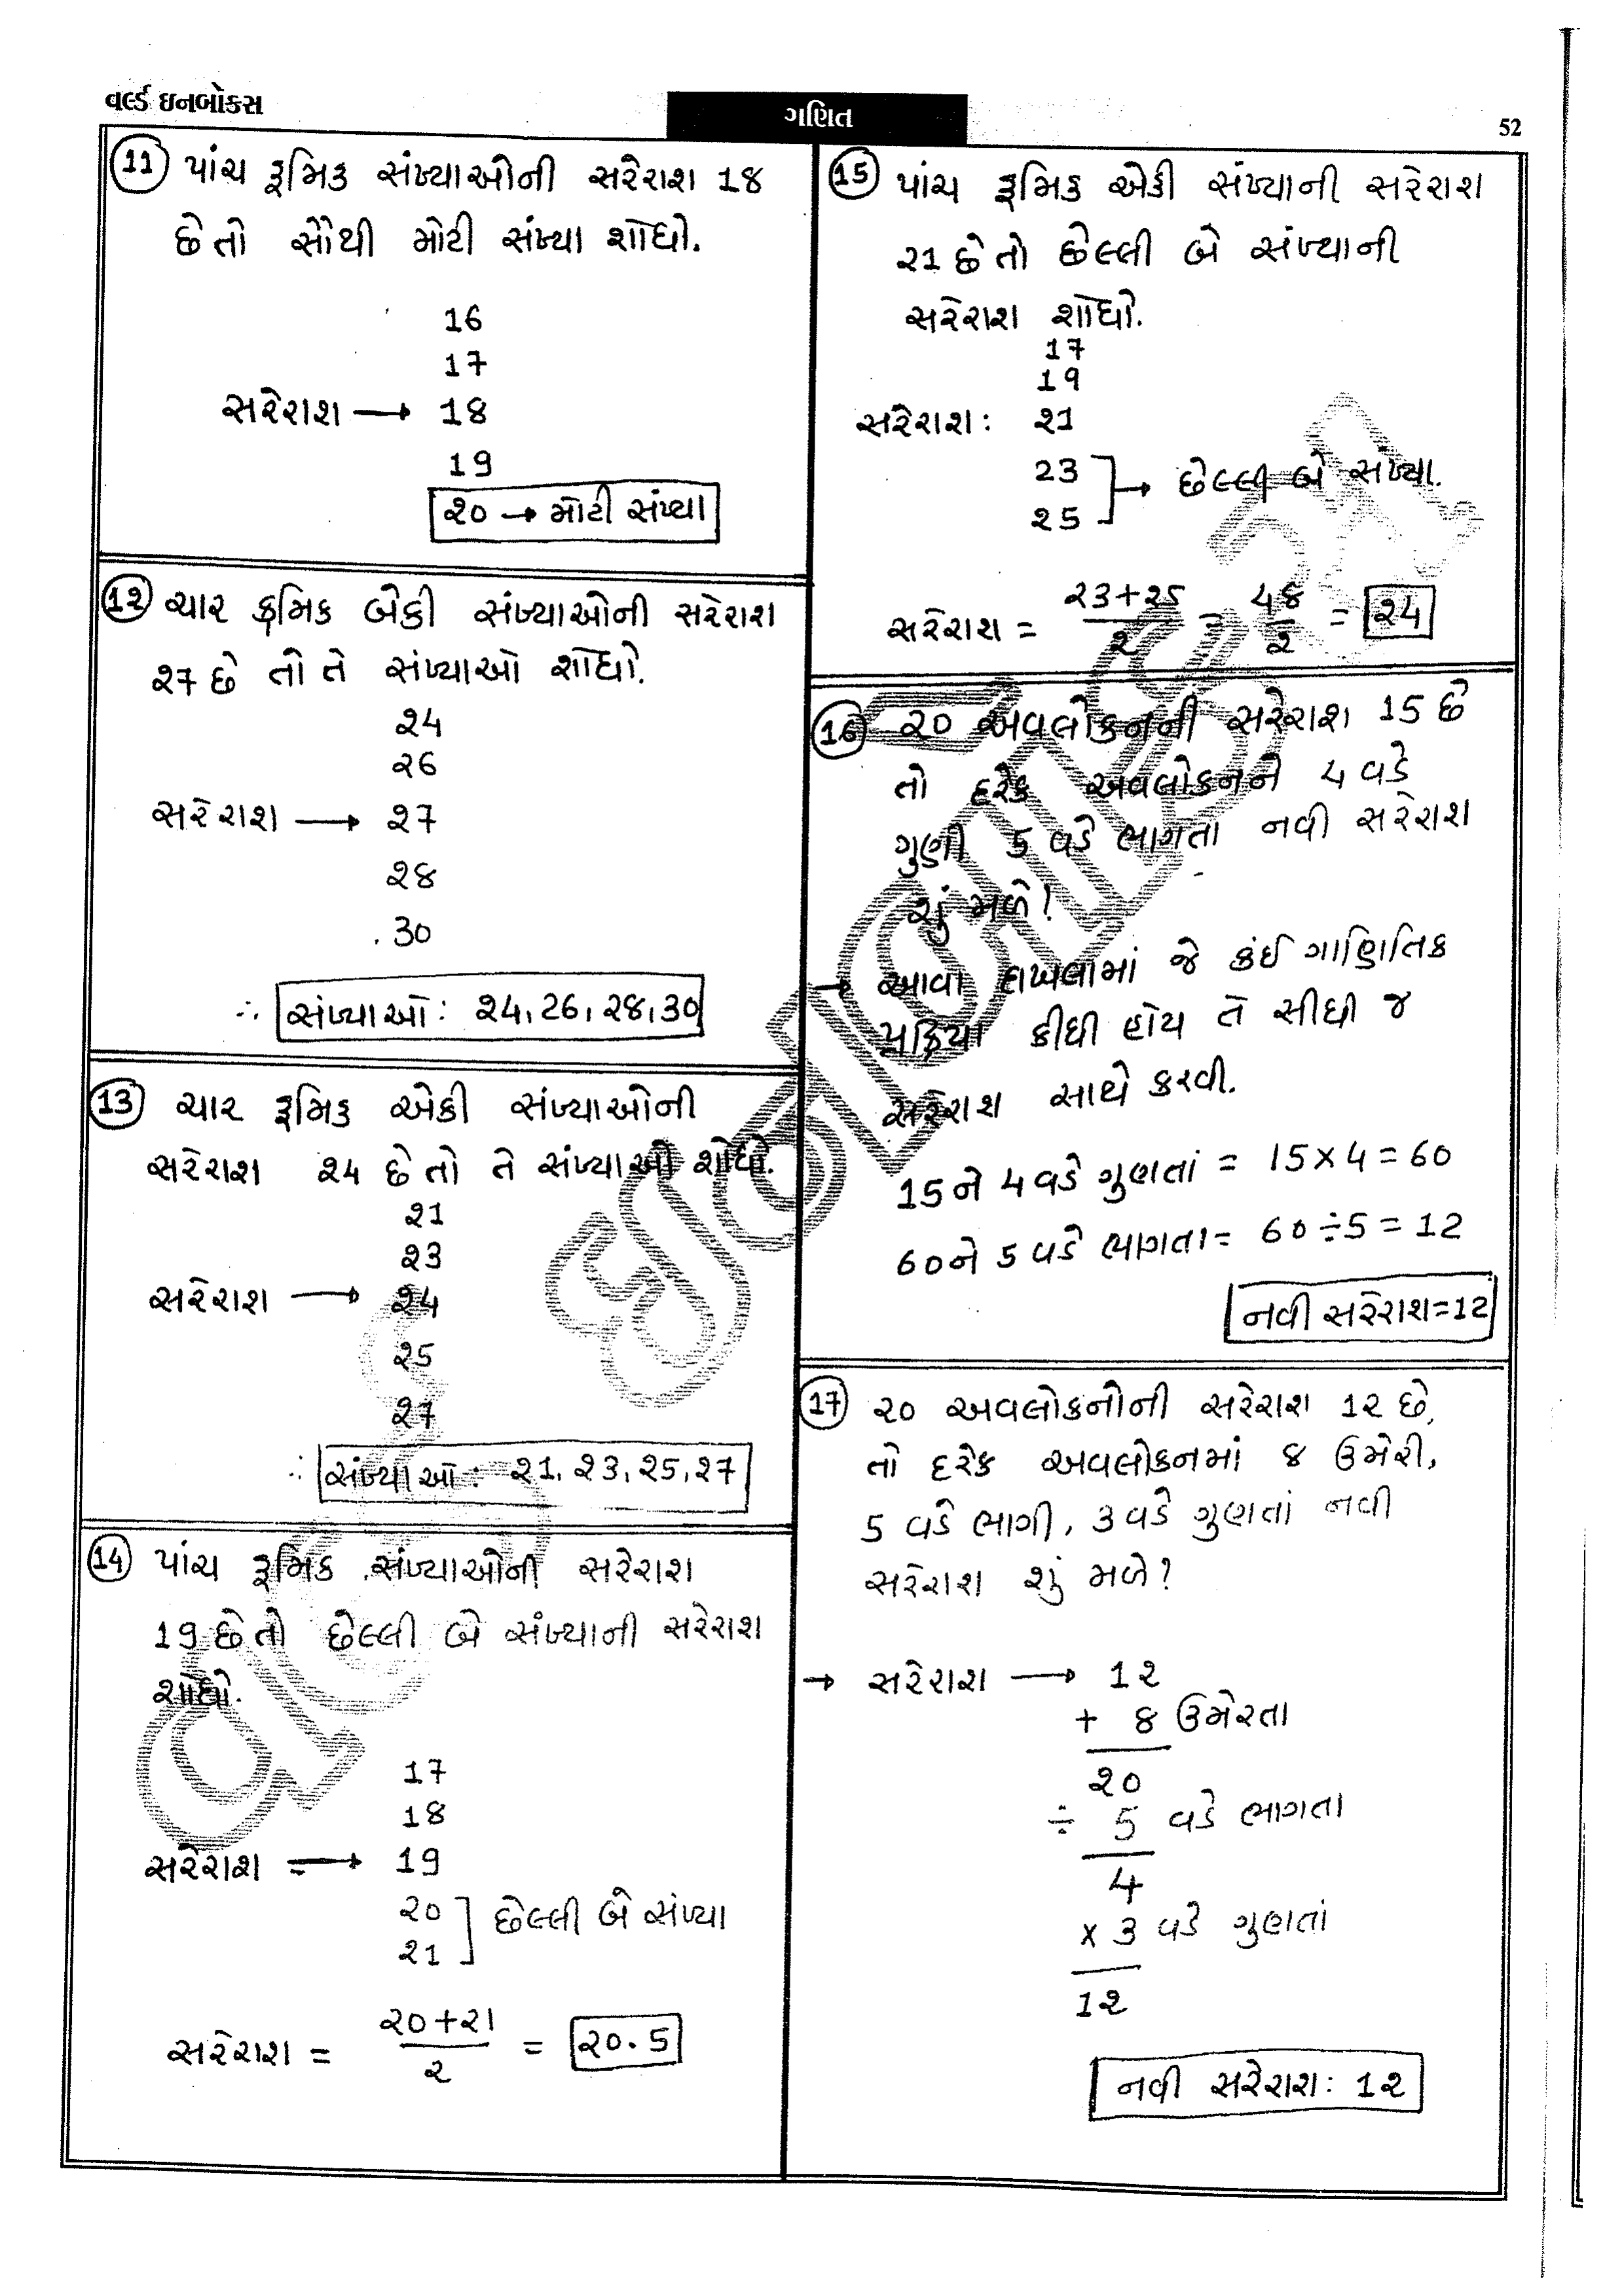 વર્લ્ડ ઇનબોક્સ
ગણિત
52
11 પાંચ ક્રમિક સંખ્યાઓની સરેરાશ 18
છે તો સૌથી મોટી સંખ્યા શોધો.
16
17
સરેરાશ → 18
19
20 → મોટી સંખ્યા
12 ચાર ક્રમિક બેકી સંખ્યાઓની સરેરાશ
27 છે તો તે સંખ્યાઓ શોધો.
24
26
સરેરાશ → 27
28
30
∴ સંખ્યાઓ: 24, 26, 28, 30
13 ચાર ક્રમિક એકી સંખ્યાઓની
સરેરાશ 24 છે તો તે સંખ્યાઓ શોધો.
21
23
સરેરાશ → 24
25
27
∴ સંખ્યાઓ: 21, 23, 25, 27
14 પાંચ ક્રમિક સંખ્યાઓની સરેરાશ
19 છે તો છેલ્લી બે સંખ્યાની સરેરાશ
શોધો.
17
18
સરેરાશ → 19
20
21 ] છેલ્લી બે સંખ્યા
સરેરાશ = 20+21 / 2 = 20.5
15 પાંચ ક્રમિક એકી સંખ્યાની સરેરાશ
21 છે તો છેલ્લી બે સંખ્યાની
સરેરાશ શોધો.
17
19
સરેરાશ: 21
23
25 ] → છેલ્લી બે સંખ્યા.
સરેરાશ = 23+25 / 2 = 48 / 2 = 24
16 20 અવલોકનની સરેરાશ 15 છે
તો દરેક અવલોકનને 4 વડે
ગુણી 5 વડે ભાગતા નવી સરેરાશ
શું મળે?
→ આવા દાખલામાં જે કંઈ ગાણિતિક
પ્રક્રિયા કીધી હોય તે સીધી જ
સરેરાશ સાથે કરવી.
15 ને 4 વડે ગુણતાં = 15 × 4 = 60
60 ને 5 વડે ભાગતા = 60 ÷ 5 = 12
નવી સરેરાશ = 12
17 20 અવલોકનોની સરેરાશ 12 છે,
તો દરેક અવલોકનમાં 8 ઉમેરી,
5 વડે ભાગી, 3 વડે ગુણતાં નવી
સરેરાશ શું મળે?
→ સરેરાશ → 12
+ 8 ઉમેરતા
20
÷ 5 વડે ભાગતા
4
× 3 વડે ગુણતાં
12
નવી સરેરાશ: 12